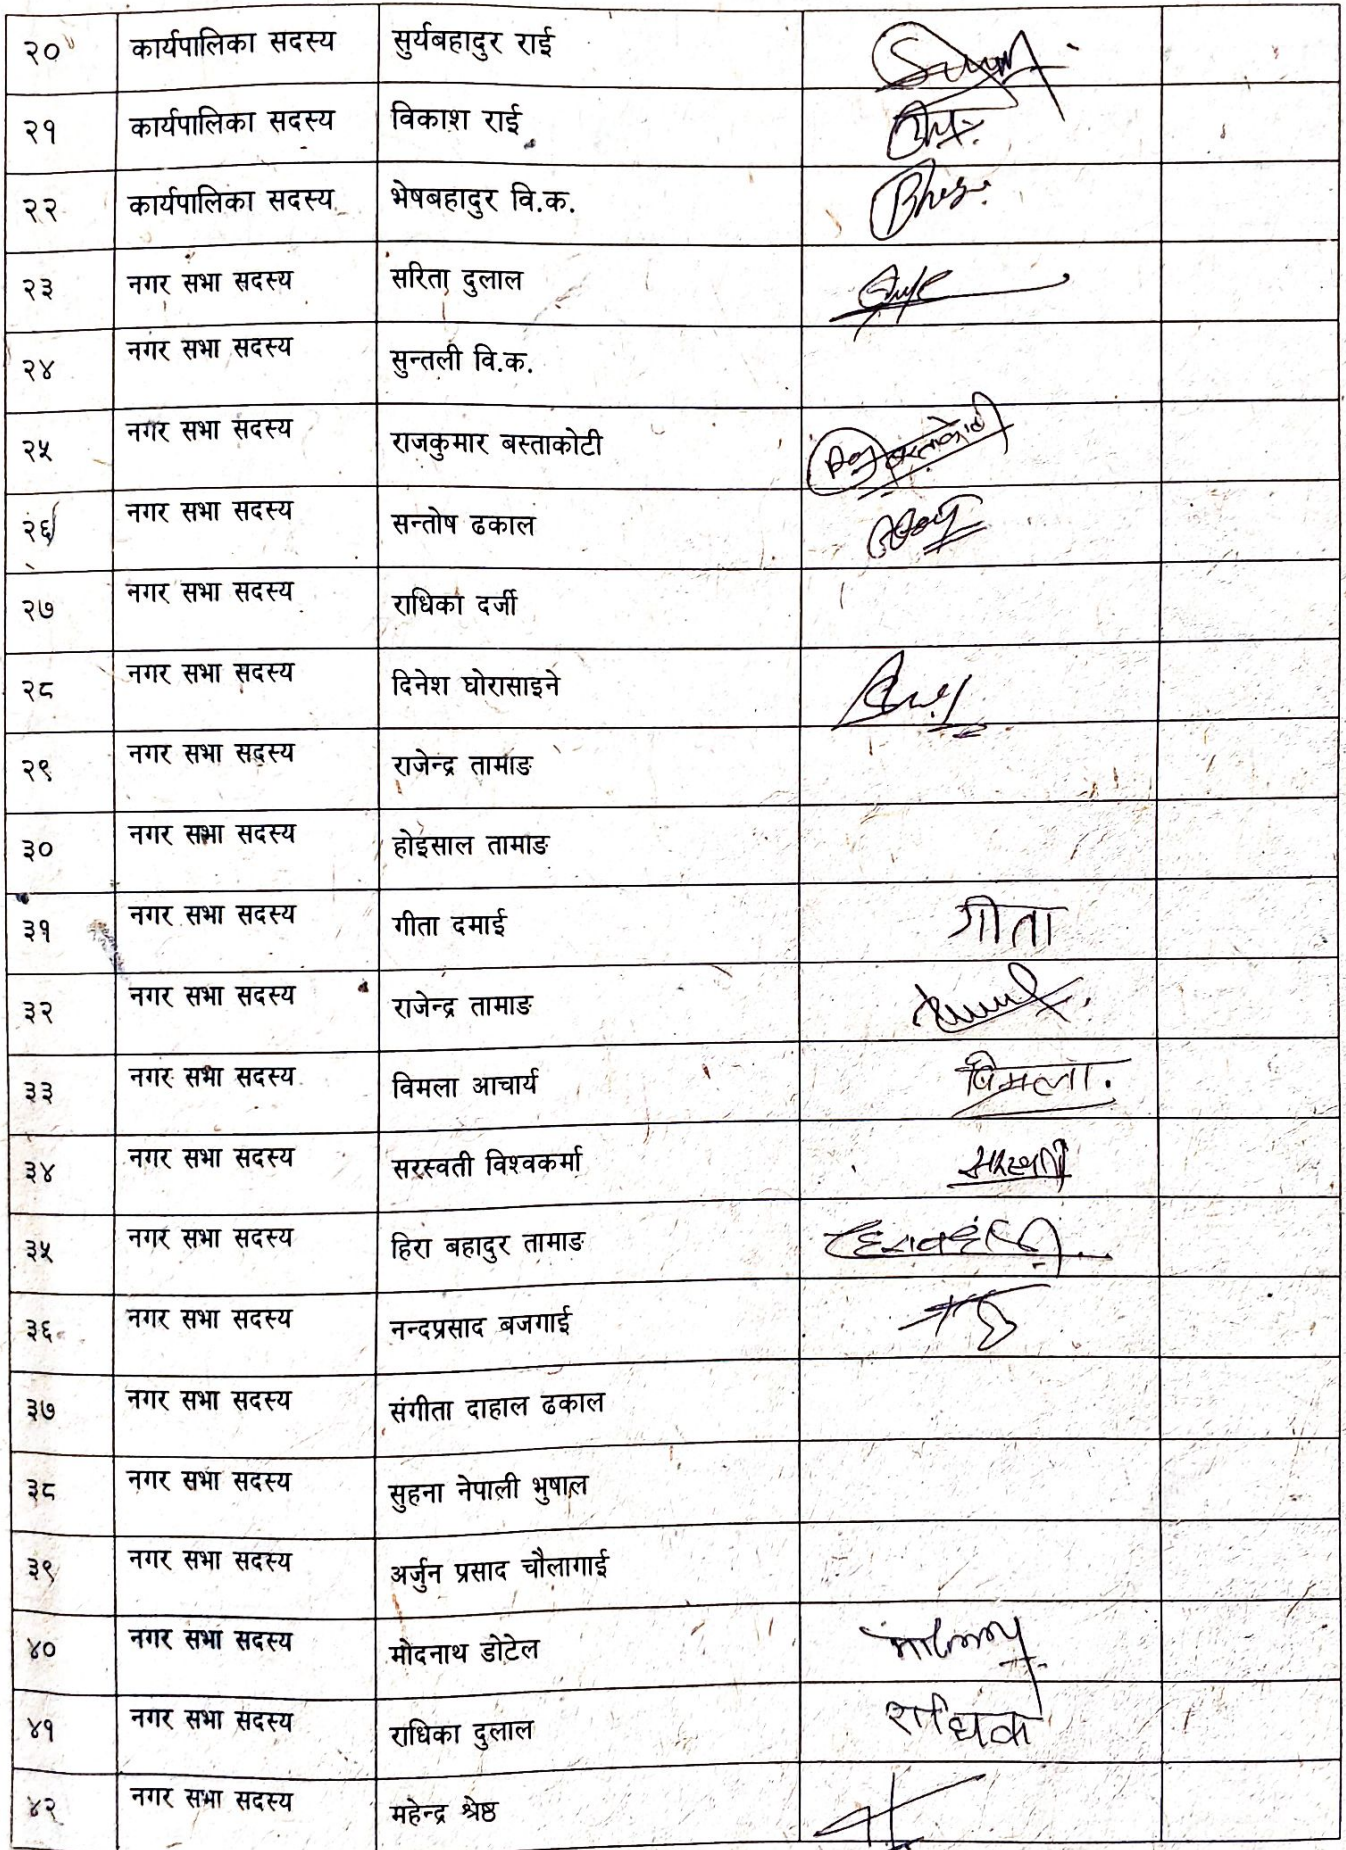 २० कार्यपालिका सदस्य सुर्यबहादुर राई
२१ कार्यपालिका सदस्य विकाश राई
२२ कार्यपालिका सदस्य भेषबहादुर वि.क.
२३ नगर सभा सदस्य सरिता दुलाल
२४ नगर सभा सदस्य सुन्तली वि.क.
२५ नगर सभा सदस्य राजकुमार बस्ताकोटी
२६ नगर सभा सदस्य सन्तोष ढकाल
२७ नगर सभा सदस्य राधिका दर्जी
२८ नगर सभा सदस्य दिनेश घोरासाइने
२९ नगर सभा सदस्य राजेन्द्र तामाङ
३० नगर सभा सदस्य होइसाल तामाङ
३१ नगर सभा सदस्य गीता दमाई गीता
३२ नगर सभा सदस्य राजेन्द्र तामाङ
३३ नगर सभा सदस्य विमला आचार्य विमला.
३४ नगर सभा सदस्य सरस्वती विश्वकर्मा सरस्वती
३५ नगर सभा सदस्य हिरा बहादुर तामाङ
३६ नगर सभा सदस्य नन्दप्रसाद बजगाई
३७ नगर सभा सदस्य संगीता दाहाल ढकाल
३८ नगर सभा सदस्य सुहना नेपाली भुषाल
३९ नगर सभा सदस्य अर्जुन प्रसाद चौलागाई
४० नगर सभा सदस्य मोदनाथ डोटेल
४१ नगर सभा सदस्य राधिका दुलाल राधिका
४२ नगर सभा सदस्य महेन्द्र श्रेष्ठ